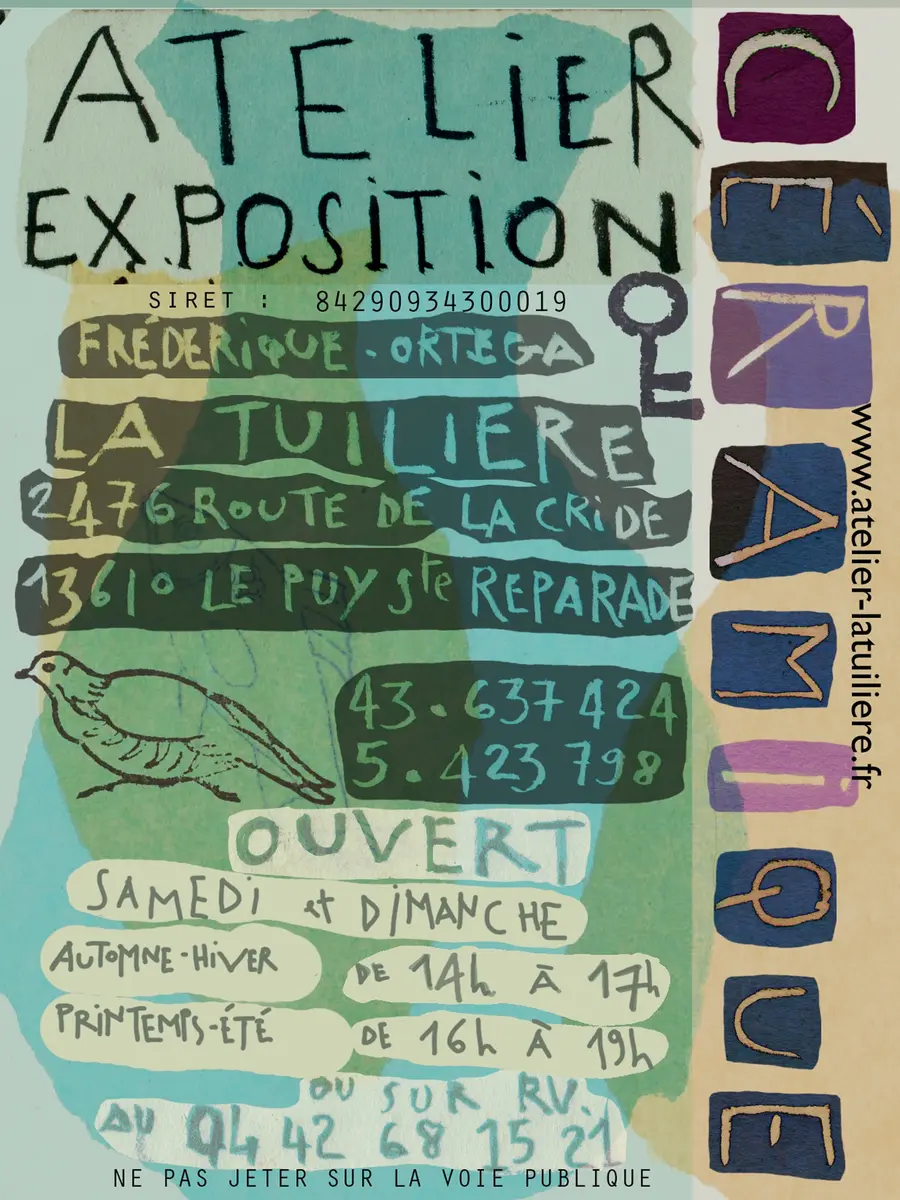 ATELIER
EXPOSITION
DE
CÉRAMIQUE
SIRET : 84290934300019
FRÉDERIQUE . ORTEGA
LA TUILIERE
2476 ROUTE DE LA CRIDE
13610 LE PUY Ste REPARADE
43.637424
5.423798
OUVERT
SAMEDI et DIMANCHE
AUTOMNE-HIVER DE 14h À 17h
PRINTEMPS-ÉTÉ DE 16h À 19h
OU SUR RV.
AU 04 42 68 15 21
NE PAS JETER SUR LA VOIE PUBLIQUE
www.atelier-latuiliere.fr